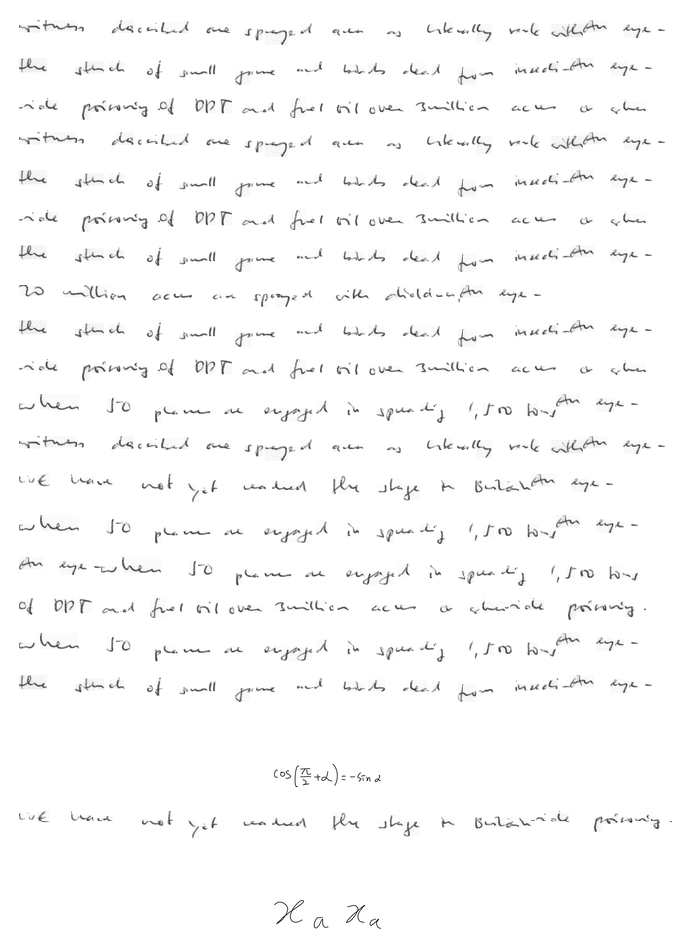 witness described one sprayed area as literally reek with An eye-
the stench of small game and birds dead from insecti- An eye-
-cide poisoning of DDT and fuel oil over 3 million acres or when
witness described one sprayed area as literally reek with An eye-
the stench of small game and birds dead from insecti- An eye-
-cide poisoning of DDT and fuel oil over 3 million acres or when
the stench of small game and birds dead from insecti- An eye-
20 million acres are sprayed with dieldrin, An eye-
the stench of small game and birds dead from insecti- An eye-
-cide poisoning of DDT and fuel oil over 3 million acres or when
when 50 planes are engaged in spreading 1,500 tons An eye-
witness described one sprayed area as literally reek with An eye-
We have not yet reached the stage in Britain An eye-
when 50 planes are engaged in spreading 1,500 tons An eye-
An eye- when 50 planes are engaged in spreading 1,500 tons
of DDT and fuel oil over 3 million acres or when -cide poisoning.
when 50 planes are engaged in spreading 1,500 tons An eye-
the stench of small game and birds dead from insecti- An eye-
cos(π/2+α)=-sin α
We have not yet reached the stage in Britain -cide poisoning.
x a x a